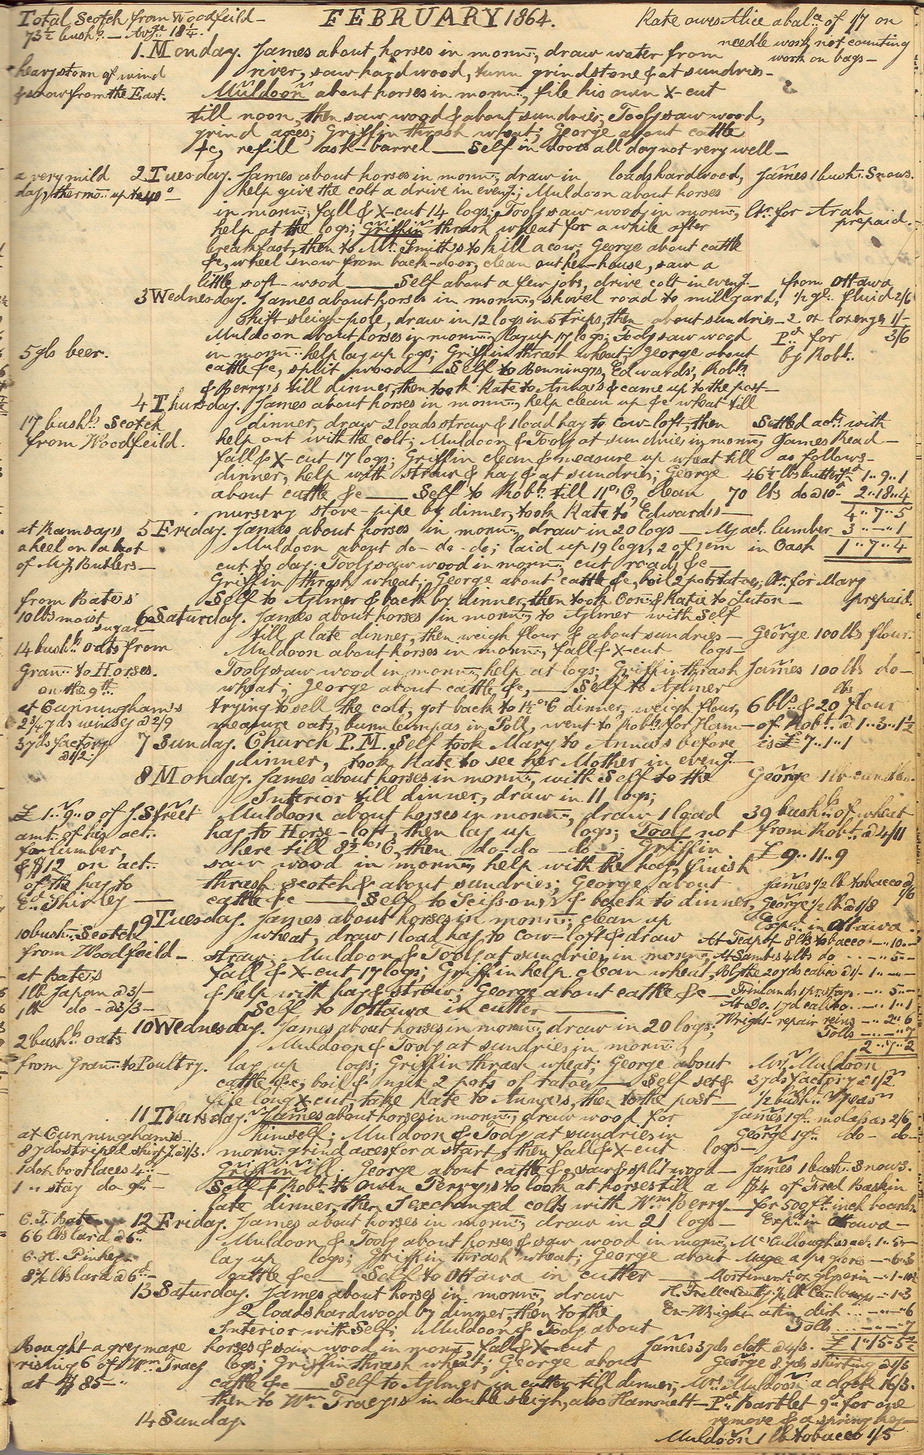 FEBRUARY 1864.
Total Scotch from Woodfeild -
73½ bush.
Kate owes Alice a bal.ce of 1/7 on
needle work not counting
work on bags -
heavy storm of wind
& snow from the East.
1. Monday. James about horses in morn:, draw water from
river, saw hardwood, turn grindstone & at sundries -
Muldoon about horses in morn:, file his own X-cut
till noon, then saw wood & about sundries; Tooly saw wood,
grind axes; Griffin thrash wheat; George about cattle
&c, refill ash-barrel - Self in doors all day not very well -
a very mild
day, thermo: up to 40°
2 Tuesday. James about horses in morn:, draw in loads hardwood,
help give the colt a drive in even:; Muldoon about horses
in morn:, fall & X-cut 14 logs; Tooly saw wood in morn:,
help at the logs; Griffin thrash wheat for a while after
breakfast, then to Mr. Smith's to kill a cow; George about cattle
&c, wheel snow from back-door, clean out hen-house, saw a
little soft-wood - Self about a few jobs, drive colt in even: -
James 1 bush: Snows.
for Arab
prepaid.
3 Wednesday. James about horses in morn:, shovel road to millyard,
shift sleigh-pole, draw in 12 logs in 5 trips, then about sundries -
Muldoon about horses in morn:, lay up 17 logs; Tooly saw wood
in morn: help lay up logs; Griffin thrash wheat; George about
cattle &c, split wood - Self to Benning's, Edwards, Rob.ts
& Berry's till dinner, then took Kate to Anna's & came up to the post -
from Ottawa
½ gl. fluid 2/6
2 oz lozenges 1/-
P.d for 3/6
by Robt.
5 gls beer.
4 Thursday. James about horses in morn:, help clean up &c wheat till
dinner, draw 2 loads straw & 1 load hay to cow-loft, then
help out with the colt; Muldoon & Tooly at sundries in morn:,
fall & X-cut 17 logs; Griffin clean & measure up wheat till
dinner, help with straw & hay & at sundries; George
about cattle &c - Self to Rob.ts till 11 o'C, clean
nursery stove-pipe by dinner, took Kate to Edwards's -
17 bush: Scotch
from Woodfeild.
Settled act: with
James Read -
as follows -
46½ lbs butter 1..9..1
70 lbs do @ 10d 2..18..4
4..7..5
My act. lumber 3..-..1
in Cash 1..7..4
at Ramsay's
a heel on a boot
of My Butlers -
5 Friday. James about horses in morn:, draw in 20 logs -
Muldoon about do - do - do; laid up 19 logs, 2 of 'em
cut to day; Tooly saw wood in morn:, cut road &c -
Griffin thrash wheat; George about cattle &c, boil 2 pots tatoes;
Self to Aylmer & back by dinner, then took Con: & Katie to Luton -
for Mary
prepaid.
from Bate's
10 lbs moist
sugar -
14 bush: oats from
Gran: to Horses.
on the 9th.
6 Saturday. James about horses in morn:, to Aylmer with Self
till a late dinner, then weigh flour & about sundries -
Muldoon about horses in morn:, fall & X-cut logs -
Tooly saw wood in morn:, help at logs; Griffin thrash
wheat; George about cattle &c, - Self to Aylmer
trying to sell the colt, got back to 1½ o'C dinner, weigh flour,
measure oats, burn lumps in Poll, went to Rob.ts for Ham -
George 100 lbs flour.
James 100 lbs do -
6 bbls & 20 lbs flour
of Robt. @ 1..3..1½
is £7..1..1
at Cunningham's
2¾ yds winsey @ 2/9
3 yds factory
@ 1/2.
7 Sunday. Church P.M. Self took Mary to Anna's before
dinner, took Kate to see her Mother in even: -
8 Monday. James about horses in morn:, with Self to the
Interior till dinner, draw in 11 logs;
Muldoon about horses in morn:, draw 1 load
hay to Horse-loft, then lay up logs; Tooly not
here till 8½ o'C, then do - do - do -; Griffin
saw wood in morn:, help with the hay, finish
thrash scotch & about sundries; George about
cattle &c - Self to Scissons's & back to dinner,
George 1 lb candles.
39 bush: of wheat
from Robt. @ 4/11
£9..11..9
James ½ lb tobacco
George ½ lb @ 1/8
£1..-..0 of J. Street
amt. of his act.
for lumber,
& $12 on act.
of the hay to
Ed. Shirley -
9 Tuesday. James about horses in morn:, clean up
wheat, draw 1 load hay to cow-loft & draw
straw; Muldoon & Tooly at sundries in morn:,
fall & X-cut 17 logs; Griffin help clean wheat
& help with hay & straw; George about cattle &c -
Self to Ottawa in cutter -
Exp: in Ottawa -
8 lbs tobacco
20 yds calico @ 1/-
Wright repair reins - 2..6
Tolls
2..7..2
10 bush: Scotch
from Woodfeild -
at Bate's
1 lb Japan @ 3/-
1 lb do - @ 3/3 -
2 bush: oats
from Gran: to Poultry.
10 Wednesday. James about horses in morn:, draw in 20 logs;
Muldoon & Tooly at sundries in morn:,
lay up logs; Griffin thrash wheat; George about
cattle &c, boil & mix 2 pots of tatoes - Self set &
file long X-cut, take Kate to Anna's, then to the post -
Mrs. Muldoon
3 yds factory @ 1/2
½ bush: peas
11 Thursday. James about horses in morn:, draw wood for
himself; Muldoon & Tooly at sundries in
morn: grind axes for a start, then fall & X-cut logs -
Griffin ill; George about cattle &c, saw & split wood -
Self & Robt. to Owen Terry's to look at horses till a
late dinner, then I exchanged colts with Wm. Berry -
James 1 gl. molasses 2/6
George 1 gl. do - do -
James 1 bush: Snows.
$4 of Fred Baskin
for 500 ft. inch boards
at Cunningham's
8 yds striped shirt'g @ 1/3.
1 doz. boot laces 4d -
1 .. stay do 9d -
C. T. Bate
66 lbs lard @ 6d -
G. H. Pinhey
8¾ lbs lard @ 6d -
12 Friday. James about horses in morn:, draw in 21 logs -
Muldoon & Tooly about horses & saw wood in morn:,
lay up logs; Griffin thrash wheat; George about
cattle &c - Self to Ottawa in cutter -
Exp: in Ottawa -
McCullough's act. 1..5..-
13 Saturday. James about horses in morn:, draw
2 loads hardwood by dinner, then to the
Interior with Self; Muldoon & Tooly about
horses & saw wood in morn:, fall & X-cut
logs; Griffin thrash wheat; George about
cattle &c - Self to Aylmer in cutter till dinner,
then to Wm. Tracy's in double sleigh, also Hammett -
Tolls
£1..15..5½
James 3 yds cloth @ 4/3.
George 8 yds shirting @ 1/3
Mrs. Muldoon a clock 16/3.
P.d Bartlet 9d for one
remove & a spring key -
Muldoon 1 lb tobacco 1/5
Bought a grey mare
rising 6 of Wm. Tracy
at $85 -
14 Sunday